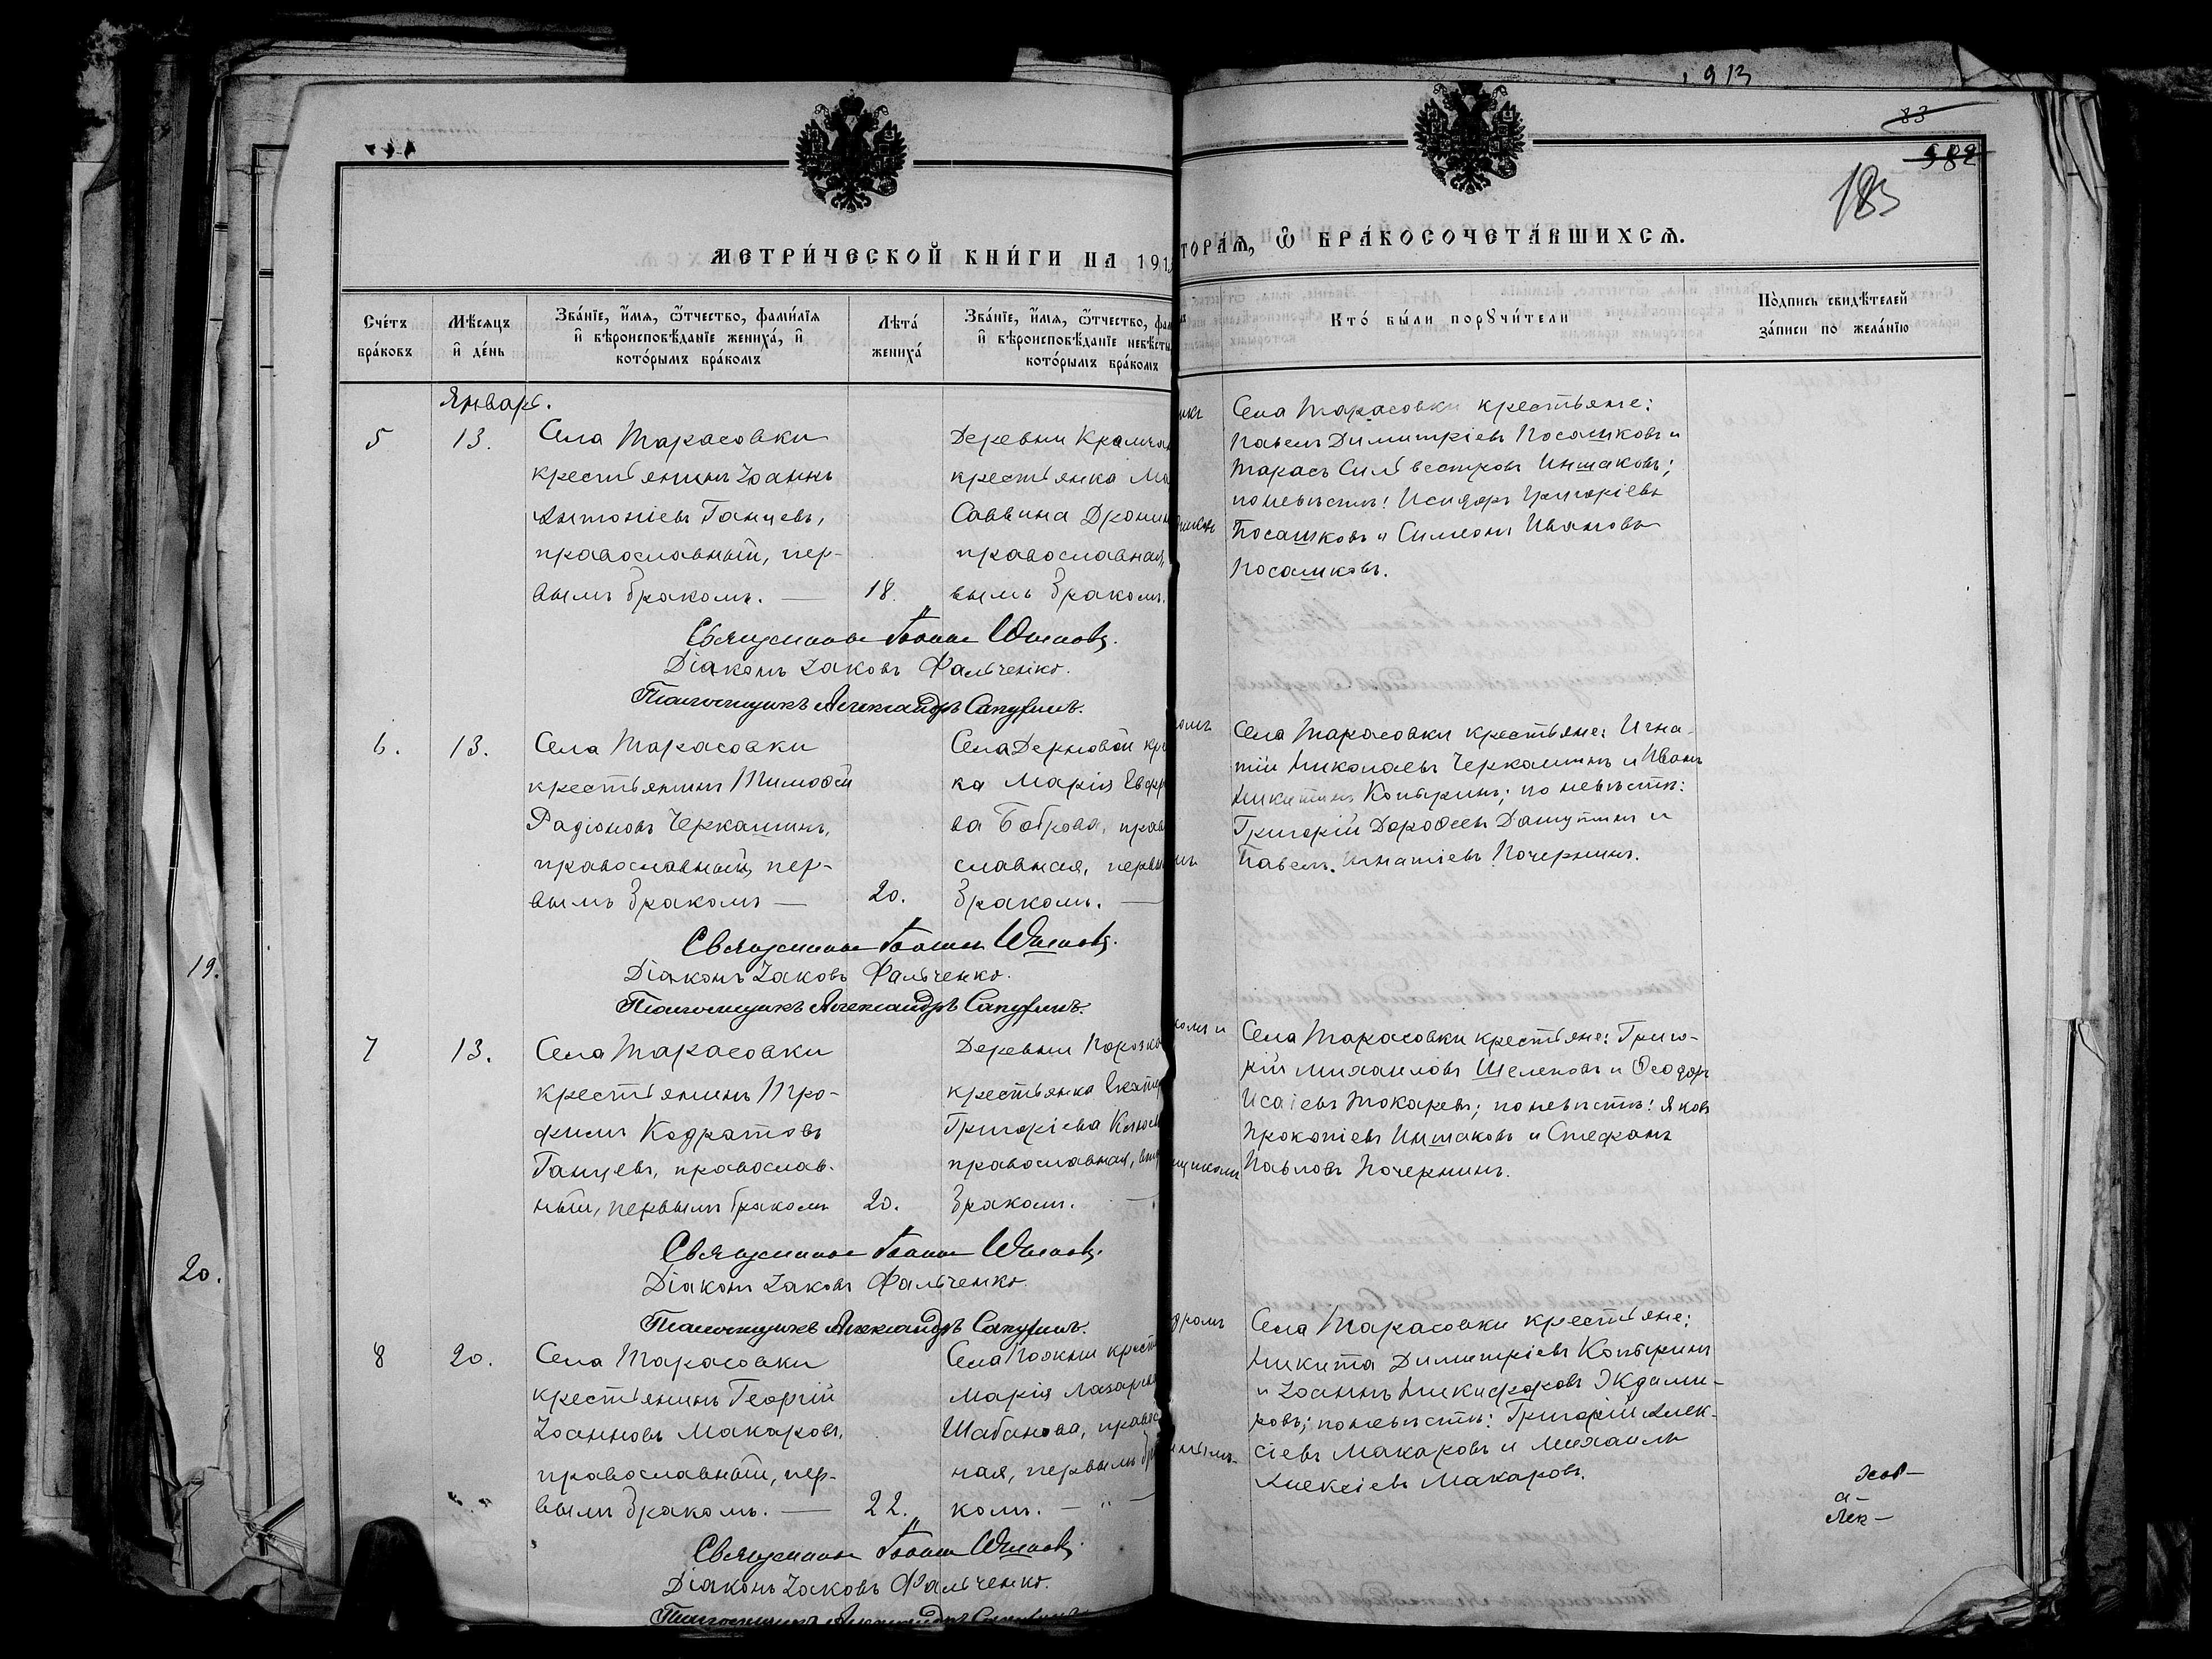 1913
83
582
183
МЕТРИ́ЧЕСКОЙ КНИ́ГИ НА 191
ТОРА́Ѧ, Ѿ БРА́КОСОЧЕТА́ВШИХСѦ.
Сче́тъ бра́ковъ
Мѣ́сяцъ и҆ де́нь
Зва́нїе, и҆́мя, ѻ҆́тчество, фами́лїя и҆ вѣроисповѣ́данїе жениха́, и҆ кото́рымъ бра́комъ
Лѣта́ жениха́
Зва́нїе, и҆́мя, ѻ҆́тчество, фам
и҆ вѣроисповѣ́данїе невѣ́сты
кото́рымъ бра́комъ
Кто́ бы́ли порꙋчи́тели
По́дпись свидѣ́телей за́писи по жела́нїю
Январь.
5
13.
Села Тарасовки
крестьянинъ Іоаннъ
Антоніевъ Ганцевъ,
православный, пер-
вымъ бракомъ. —
18.
Деревни Крамча
крестьянка Ма
Саввина Дронин
православная,
вымъ бракомъ.
Села Тарасовки крестьяне:
Павелъ Димитріевъ Посашковъ и
Тарасъ Сильвестровъ Иншаковъ;
по невѣстѣ: Исидоръ Григоріевъ
Посашковъ и Симеонъ Ивановъ
Посашковъ.
Священникъ Іоаннъ
Діаконъ Іаковъ Фальченко.
Псаломщикъ Александръ
6.
13.
Села Тарасовки
крестьянинъ Тимоѳей
Радіоновъ Черкашинъ,
православный, пер-
вымъ бракомъ —
20.
Села Дерновой кре
ка Марія Евфр
ва Боброва, прав
славная, первы
бракомъ. —
Села Тарасовки крестьяне: Игна-
тій Николаевъ Черкашинъ и Иванъ
Никитинъ Копыринъ; по невѣстѣ:
Григорій Дороѳеевъ Дашутинъ и
Павелъ Игнатіевъ Почернинъ.
Священникъ Іоаннъ
Діаконъ Іаковъ Фальченко.
Псаломщикъ Александръ
19.
7
13.
Села Тарасовки
крестьянинъ Тро-
фимъ Кодратовъ
Ганцевъ, православ-
ный, первымъ бракомъ
20.
Деревни
крестьянка Екате
Григоріева
православная, вто
бракомъ. —
Села Тарасовки крестьяне: Григо-
рій Михаиловъ Шелеховъ и Ѳеодоръ
Исаіевъ Токаревъ; по невѣстѣ: Яковъ
Прокопіевъ Иншаковъ и Стефанъ
Павловъ Почернинъ.
Священникъ Іоаннъ
Діаконъ Іаковъ Фальченко
Псаломщикъ Александръ
20.
8
20.
Села Тарасовки
крестьянинъ Георгій
Іоанновъ Макаровъ,
православный, пер-
вымъ бракомъ. —
22.
Села Пожни крест
Марія Лазарев
Шабанова, правос
ная, первымъ бр
комъ. — " —
Села Тарасовки крестьяне:
Никита Димитріевъ Копыринъ
и Іоаннъ Никифоровъ
ровъ; по невѣстѣ: Григорій Алек-
сіевъ Макаровъ и Михаилъ
Алексіевъ Макаровъ.
Священникъ Іоаннъ
Діаконъ Іаковъ Фальченко.